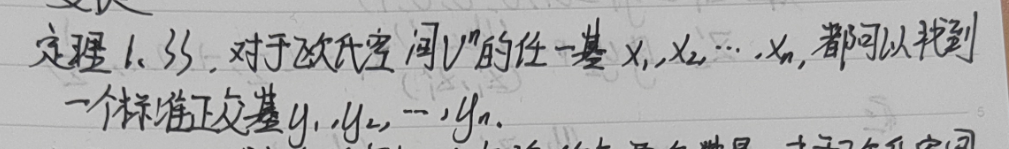 定理1.33. 对于欧氏空间Vⁿ的任一基 x₁,x₂,…,xₙ, 都可以找到
一个标准正交基y₁,y₂,…,yₙ.